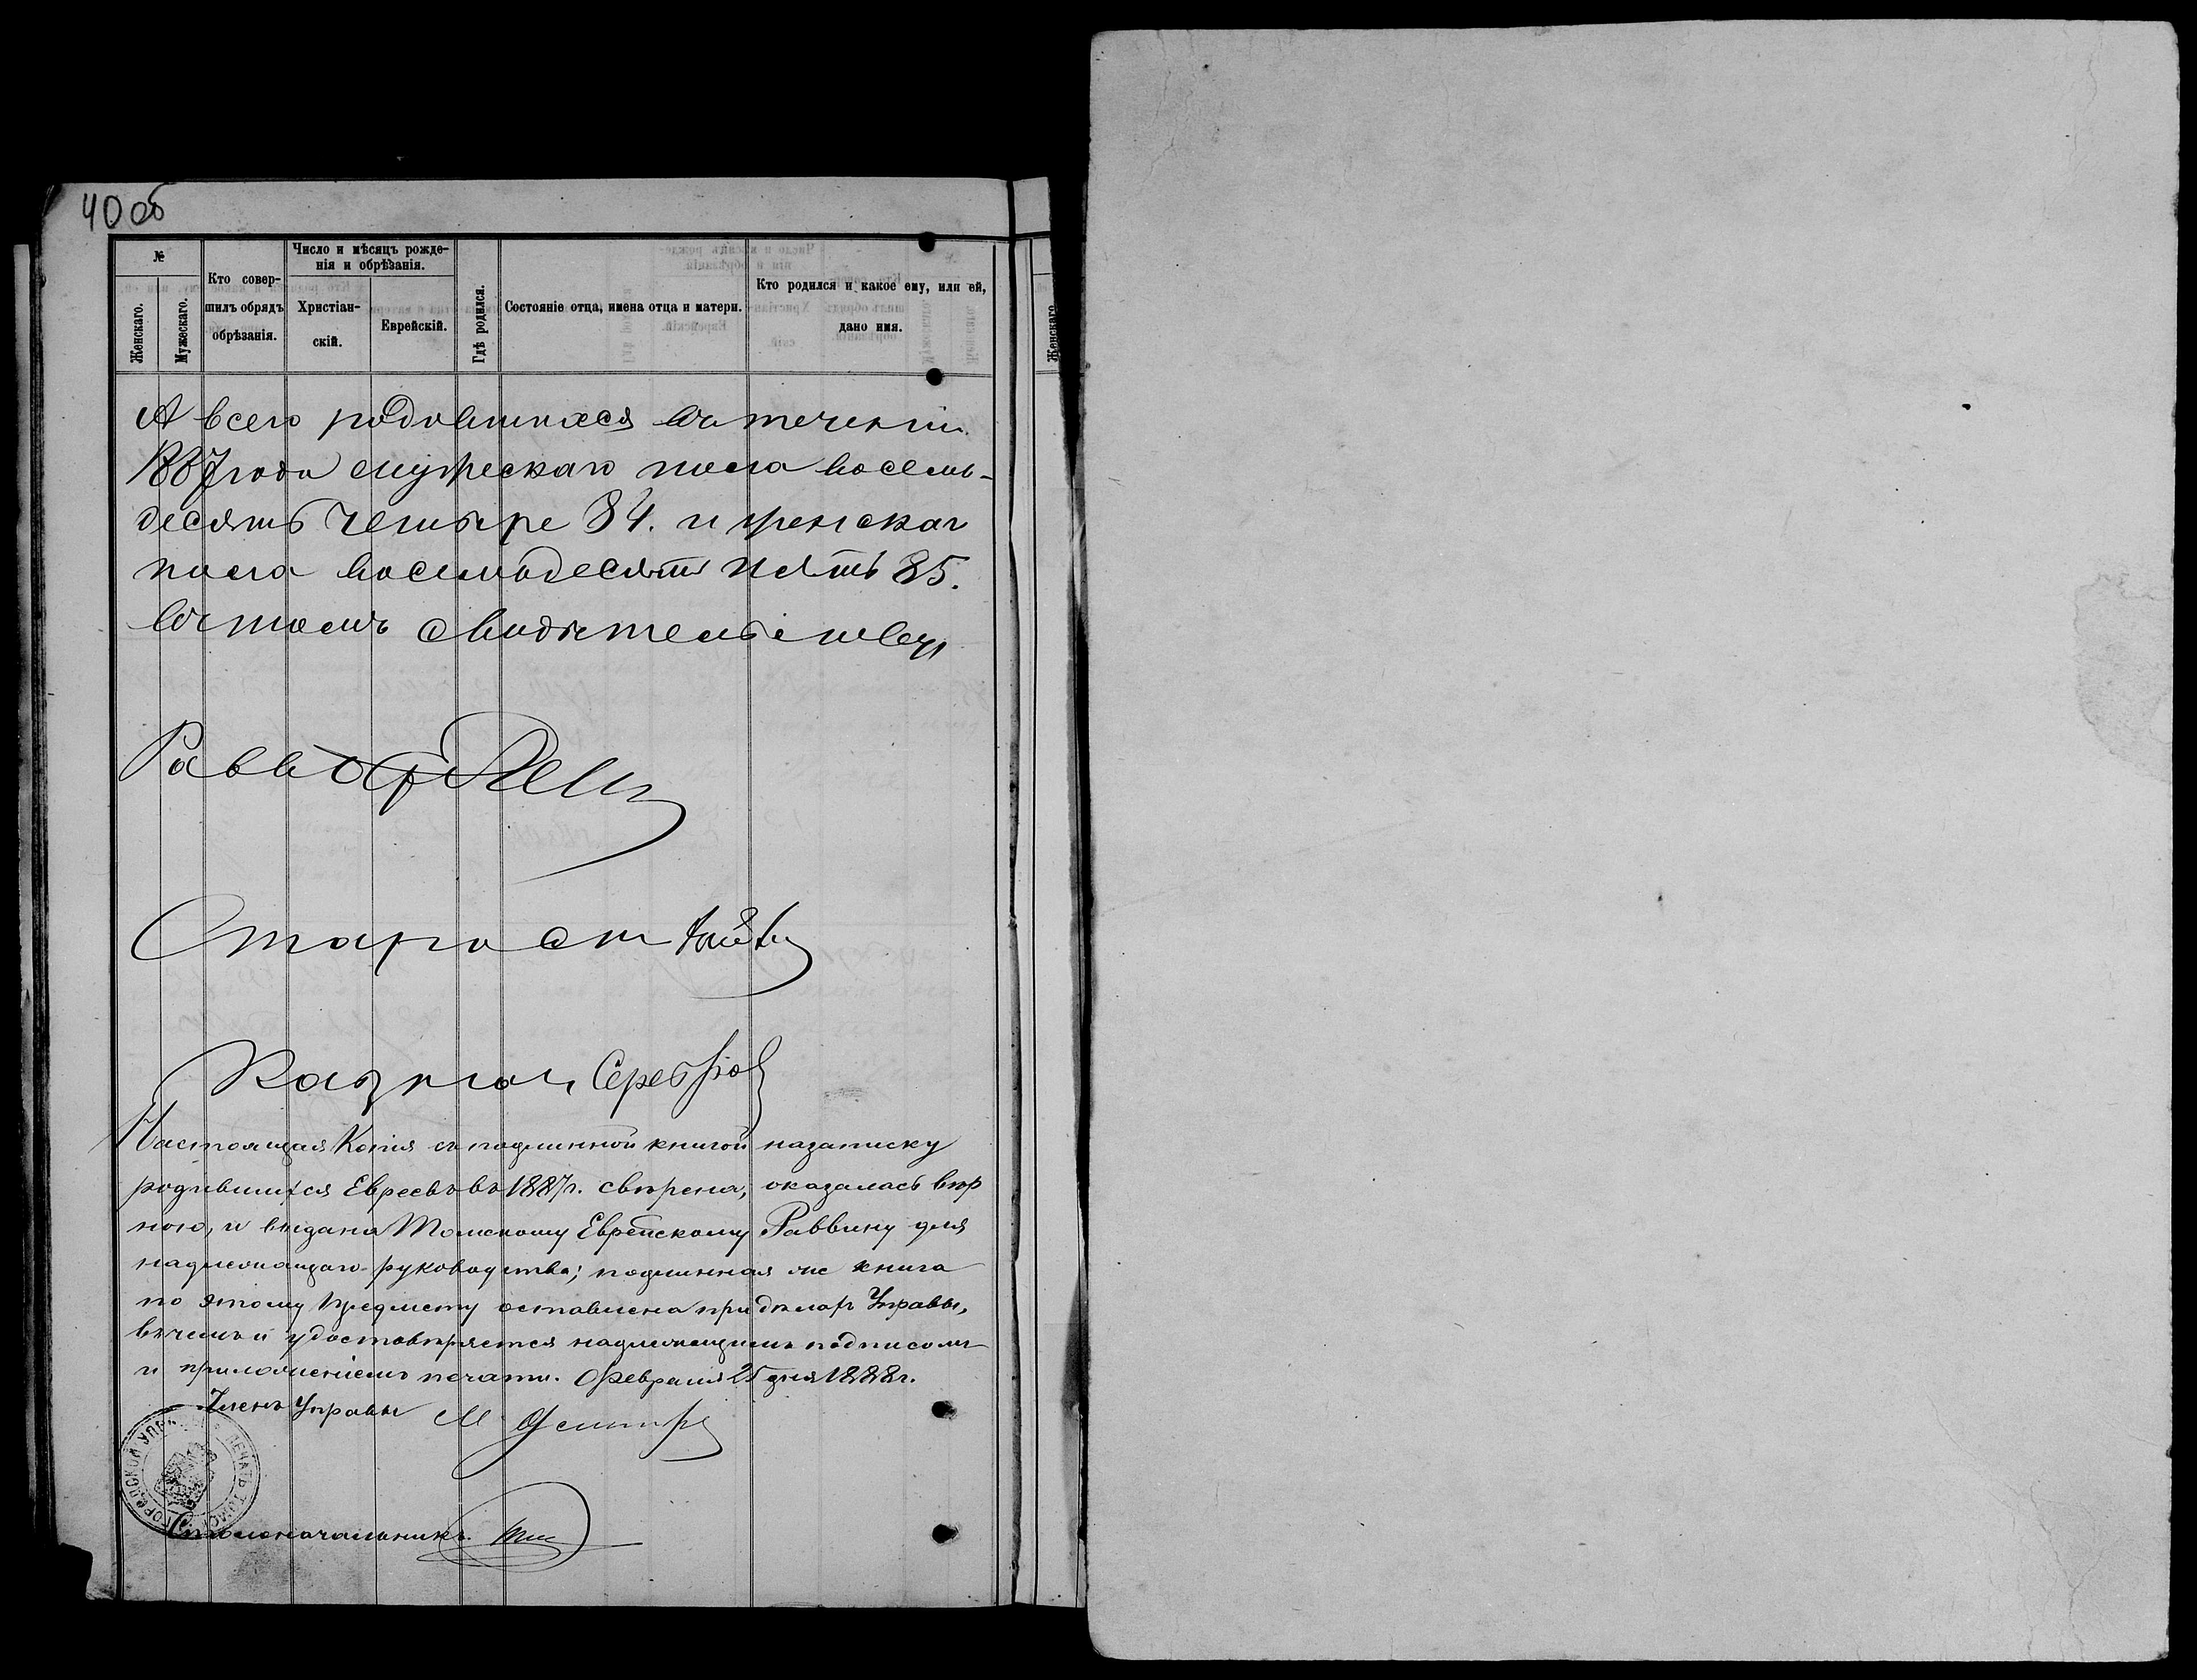 40об
№
Женскаго.
Мужескаго.
Кто совер-
шилъ обрядъ
обрѣзанія.
Число и мѣсяцъ рожде-
нія и обрѣзанія.
Христіан-
скій.
Еврейскій.
Гдѣ родился.
Состояніе отца, имена отца и матери.
Кто родился и какое ему, или ей,
дано имя.
Женскаго
А всего родившихся въ теченіи
1887 года мужескаго пола восемь-
десятъ четыре 84. и женскаг
пола восемьдесятъ пять 85.
въ томъ свидѣтельствую
Равв
Старост
Казнач Серебро
Настоящая Копія съ подлинной книгой на записку
родившихся Евреевъ въ 1887г. свѣрена, оказалась вѣр
ною, и выдана Томскому Еврейскому Раввину для
надлежащаго руководства; подлинная же книга
по этому предмету оставлена при дѣлах Управы,
въ чемъ и удостовѣряется надлежащимъ подписомъ
и приложеніемъ печати. Февраля 25 дня 1888г.
Членъ Управы М
ПЕЧАТЬ ТОМСКОЙ ГОРОДСКОЙ УПРАВЫ
Столоначальникъ